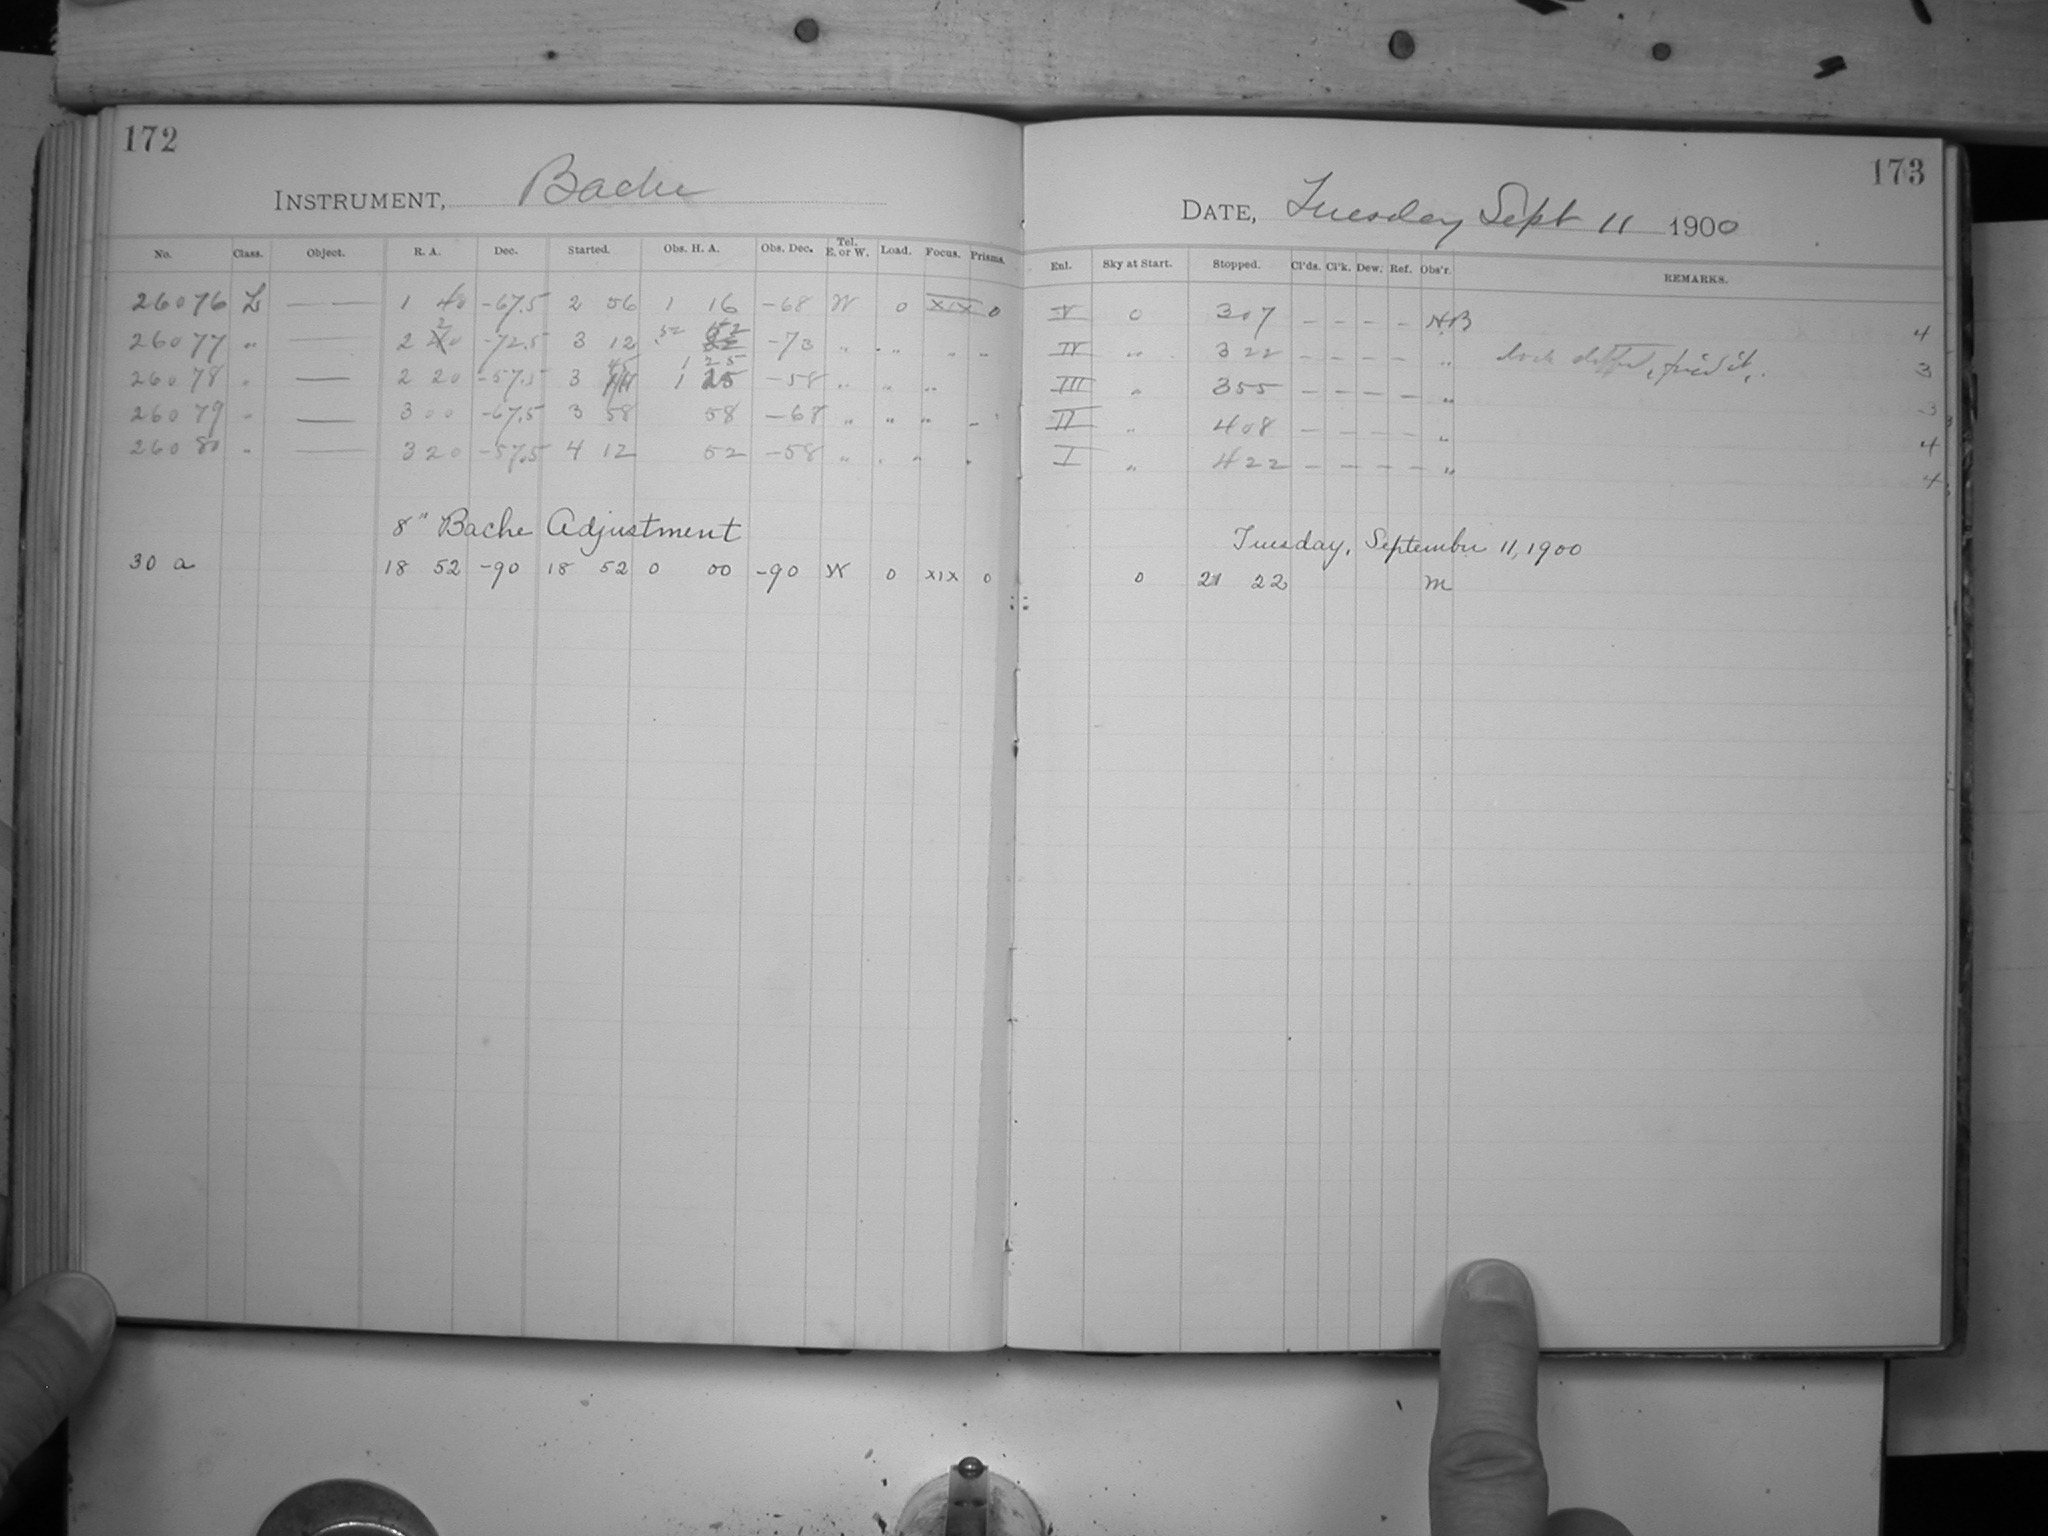 172
INSTRUMENT, Bache
No. Class. Object. R. A. Dec. Started. Obs. H. A. Obs. Dec. Tel. E. or W. Load. Focus. Prisms.
26076 L — — 1 40 -67.5 2 56 1 16 -68 W 0 XIX 0
26077 " — — 2 20 -72.5 3 12 52 -73 " " " " "
26078 " — 2 20 -57.5 3 45 1 25 -58 " " "
26079 " — 3 00 -67.5 3 58 58 -68 " " " "
26080 " — 3 20 -57.5 4 12 52 -58 " " " "
8" Bache Adjustment
30 a 18 52 -90 18 52 0 00 -90 W 0 XIX 0
173
DATE, Tuesday Sept 11 1900
Enl. Sky at Start. Stopped. Cl'ds. Cl'k. Dew. Ref. Obs'r. REMARKS.
V 0 307 – – – – HB 4
IV " 322 – – – – " 3
III " 355 – – – – " 3
II " 408 – – – – " 4
I " 422 – – – – " 4
Tuesday, September 11, 1900
0 21 22 m